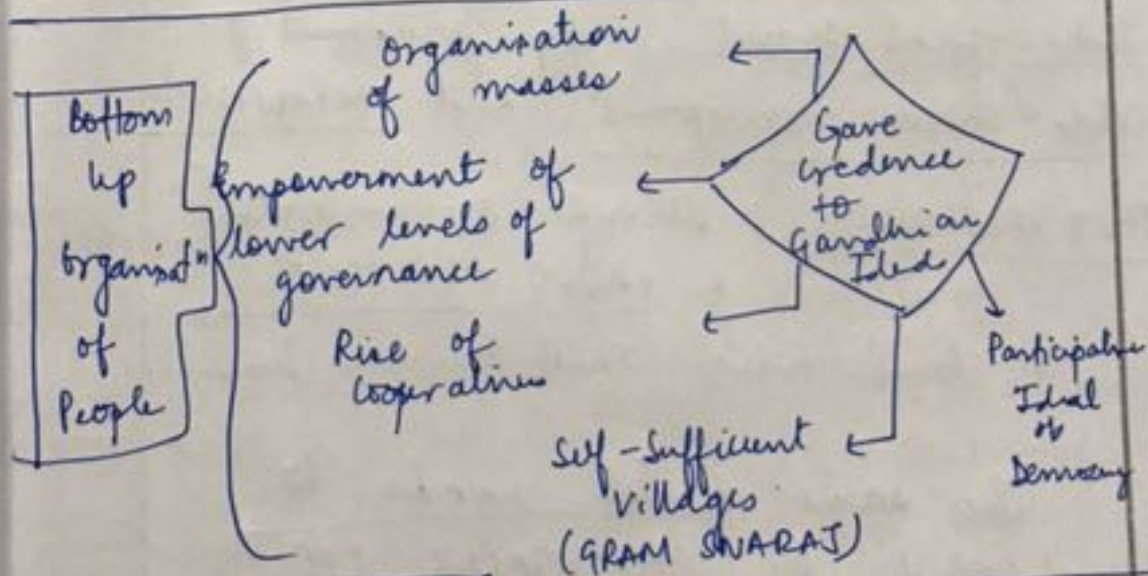 Bottom
up
Organisatn
of
People
Organisation
of masses
Empowerment of
lower levels of
governance
Rise of
Cooperatives
Self-Sufficient
Villages
(GRAM SWARAJ)
Gave
credence
to
Gandhian
Ideal
Participative
Ideal
of
Democracy